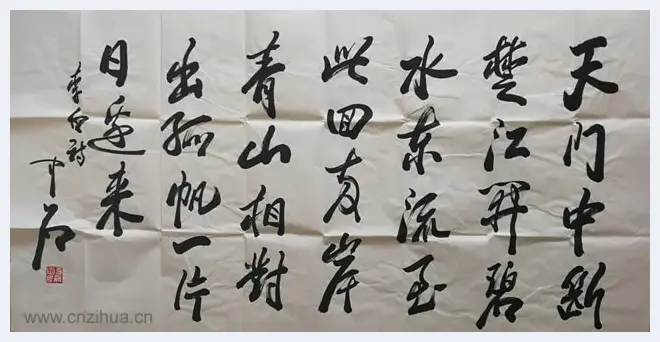 天门中断
楚江開碧
水东流至
此回友岸
青山相對
出孤帆一片
日邊来
李白诗
中石
www.cnzihua.cn